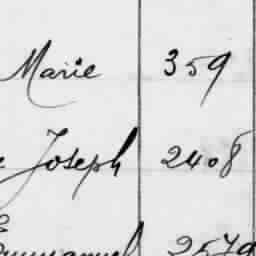 Marie 359
Joseph 2408
Emmanuel 2579